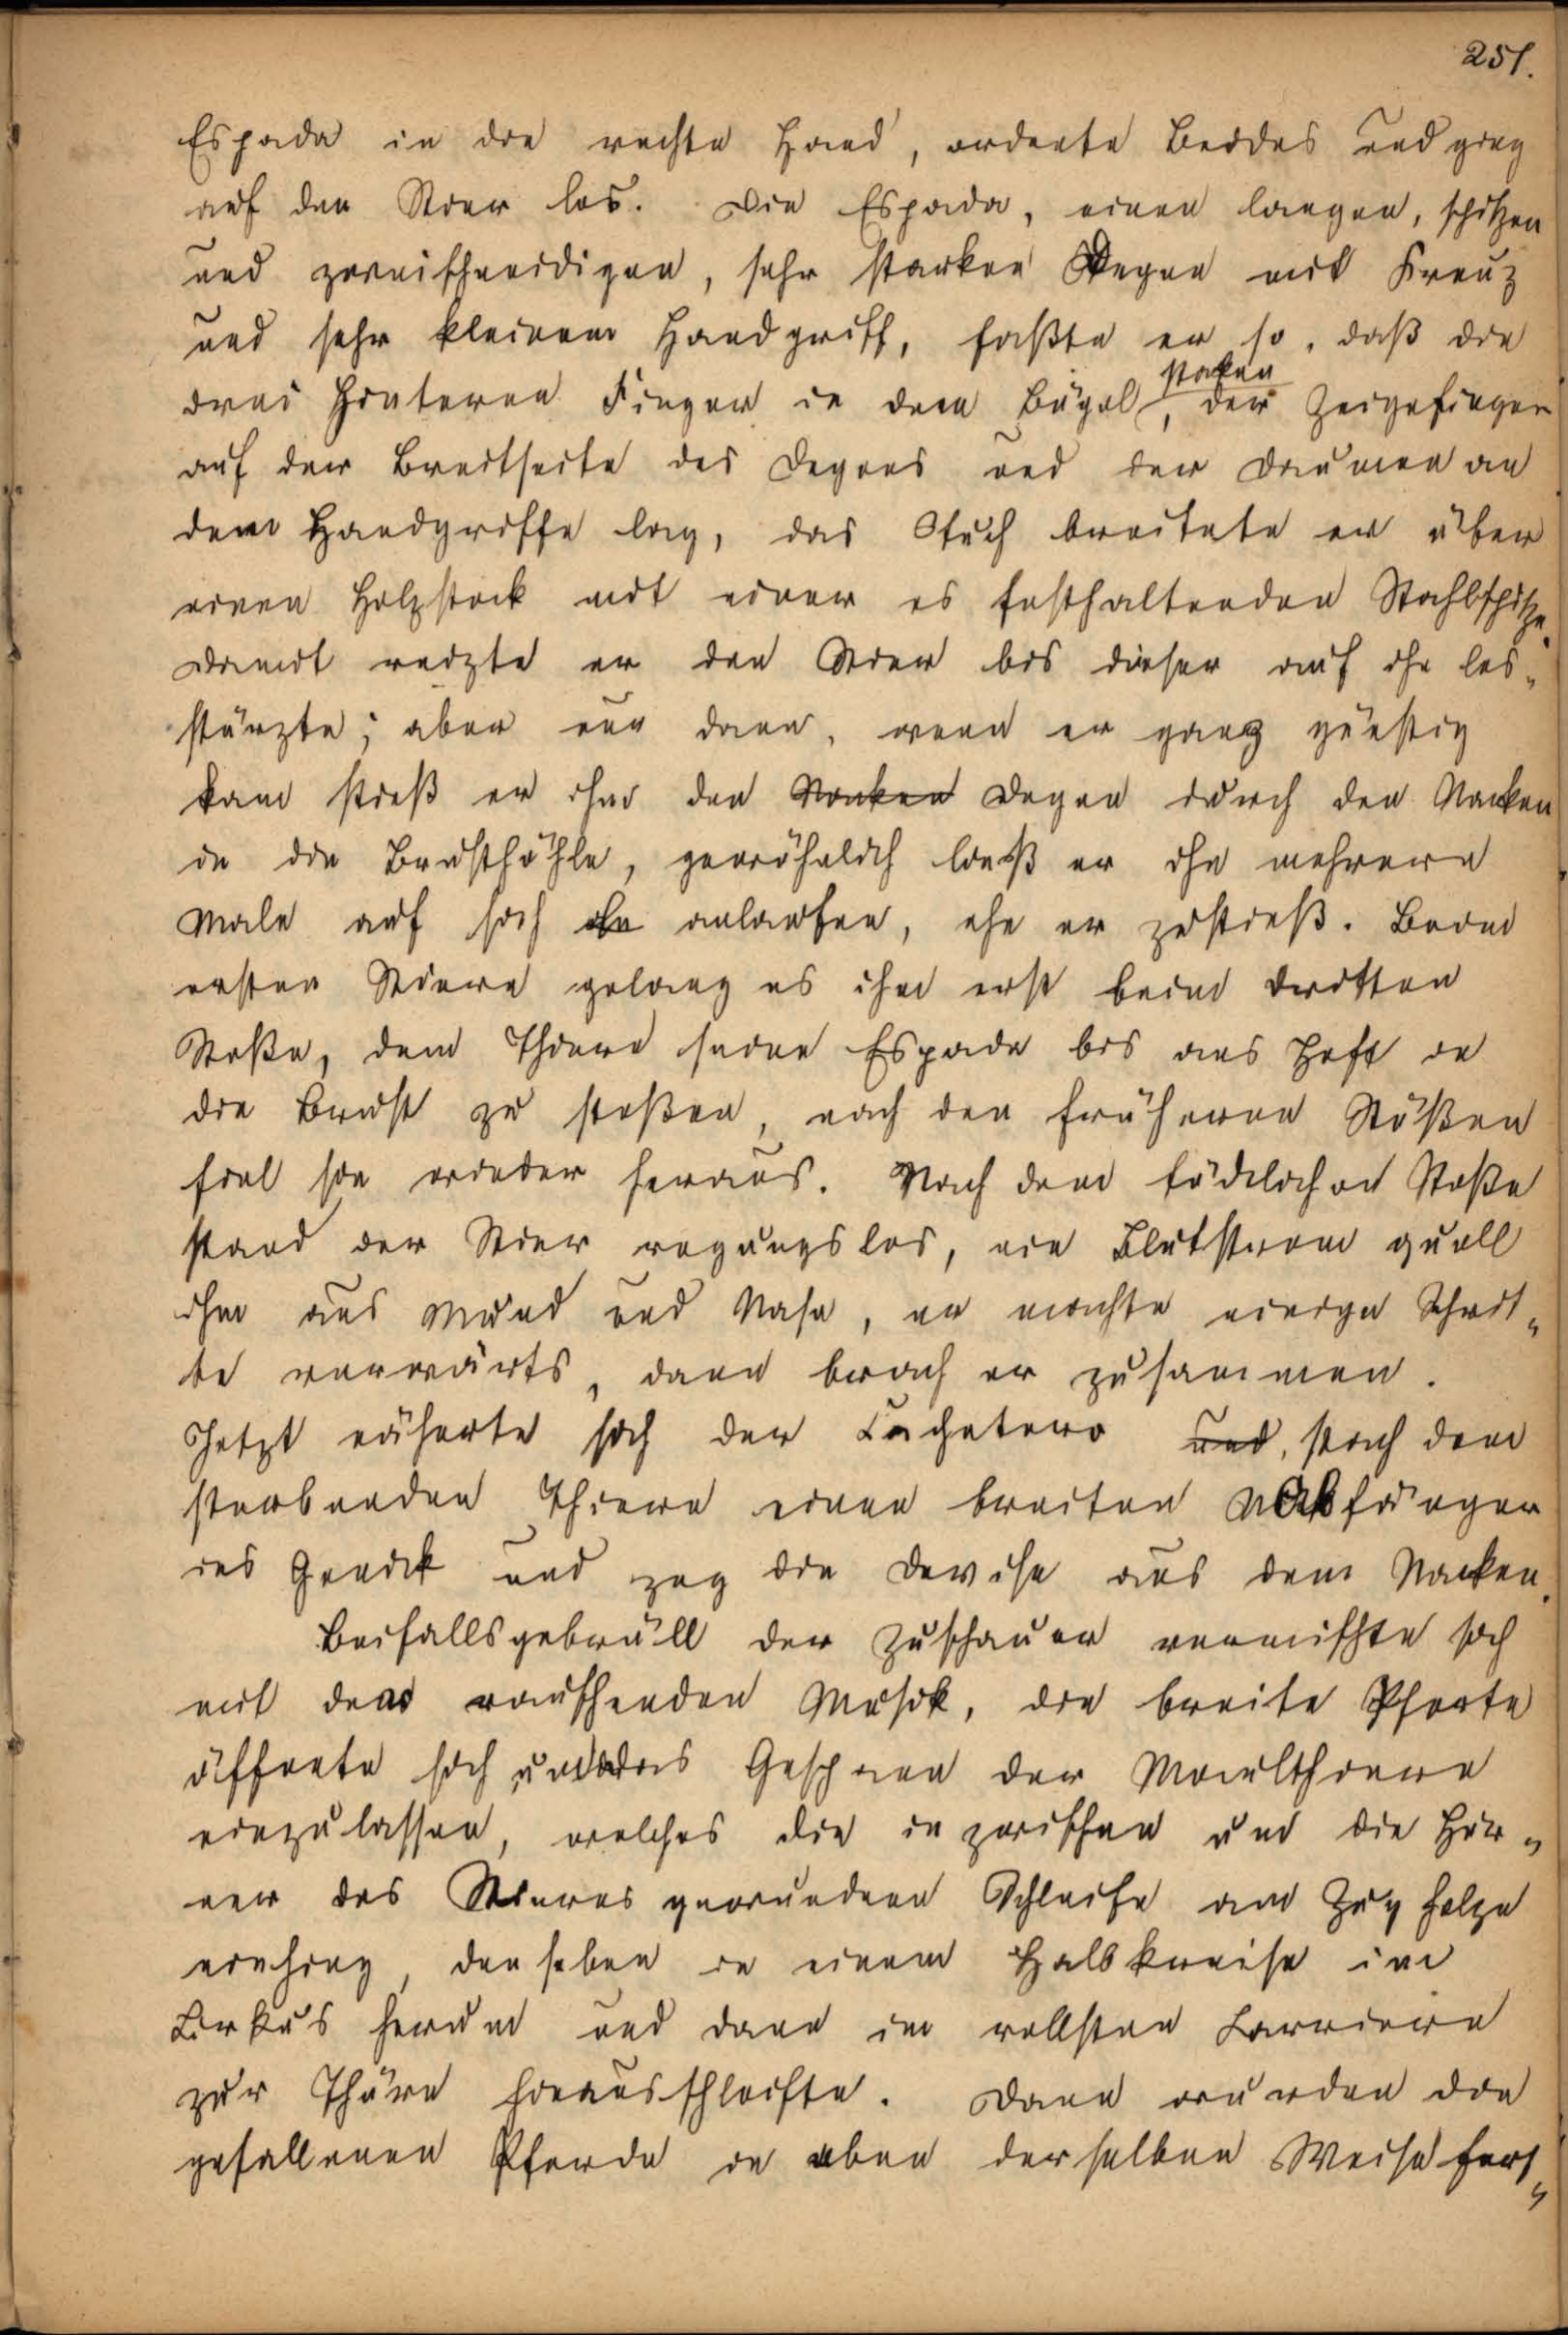 251.
Espada in die rechte Hand, ordnete Beides und ging
auf den Stier los. Die Espada, einen langen, spitzen
und zweischneidigen, sehr starken Degen mit Kreuz
und sehr kleinem Handgriff, faßte er so, daß die
staken
drei hinteren Finger in dem Bügel, der Zeigefinger
auf der Breitseite des Degens und der Daumen an
dem Handgriffe lag, das Tuch breitete er über
einen Holzstock mit einer es festhaltenden Stahlspitze.
Damit reizte er den Stier bis dieser auf ihn los„
stürzte; aber nur dann, wenn er ganz günstig
kam stieß er ihm den Nacken Degen durch den Nacken
in die Brusthöhle, gewöhnlich ließ er ihn mehrere
Male auf sich ihn anlaufen, ehe er zustieß. Beim
ersten Stiere gelang es ihm erst beim dritten
Stoße, dem Thiere seine Espada bis ans Heft in
die Brust zu stoßen, nach den früheren Stößen
fiel sie wieder heraus. Nach dem tödtlichen Stoße
stand der Stier regungslos, ein Blutstrom quoll
ihm aus Mund und Nase, er machte einige Schrit„
te vorwärts, dann brach er zusammen.
Jetzt näherte sich der Cachetero und, stach dem
sterbenden Thiere einen breiten Nickfänger
ins Genick und zog die Devise aus dem Nacken.
Beifallsgebrüll der Zuschauer vermischte sich
mit der rauschenden Musik, die breite Pforte
öffnete sich um das Gespann der Maulthiere
einzulassen, welches die inzwischen um die Hör„
ner des Stieres gewundene Schleife am Zugholze
einhing, denselben in einem Halbkreise im
Cirkus herum und dann in vollster Carriere
zur Thüre hinausschleifte. Dann wurden die
gefallenen Pferde in eben derselben Weise fort„